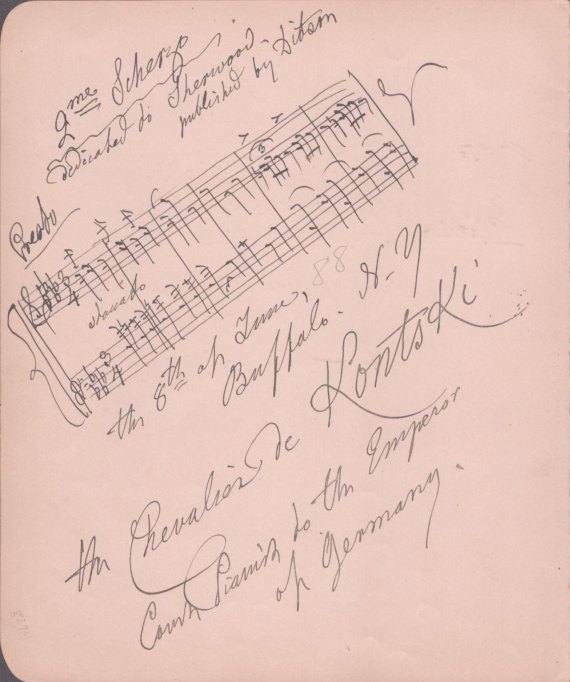 2me Scherzo
dedicated to Sherwood
published by Ditson
Presto
3 4
staccato
3 4
the 8th of June, 88
Buffalo. N-Y
the Chevalier de Kontski
Court Pianist to the Emperor
of Germany.